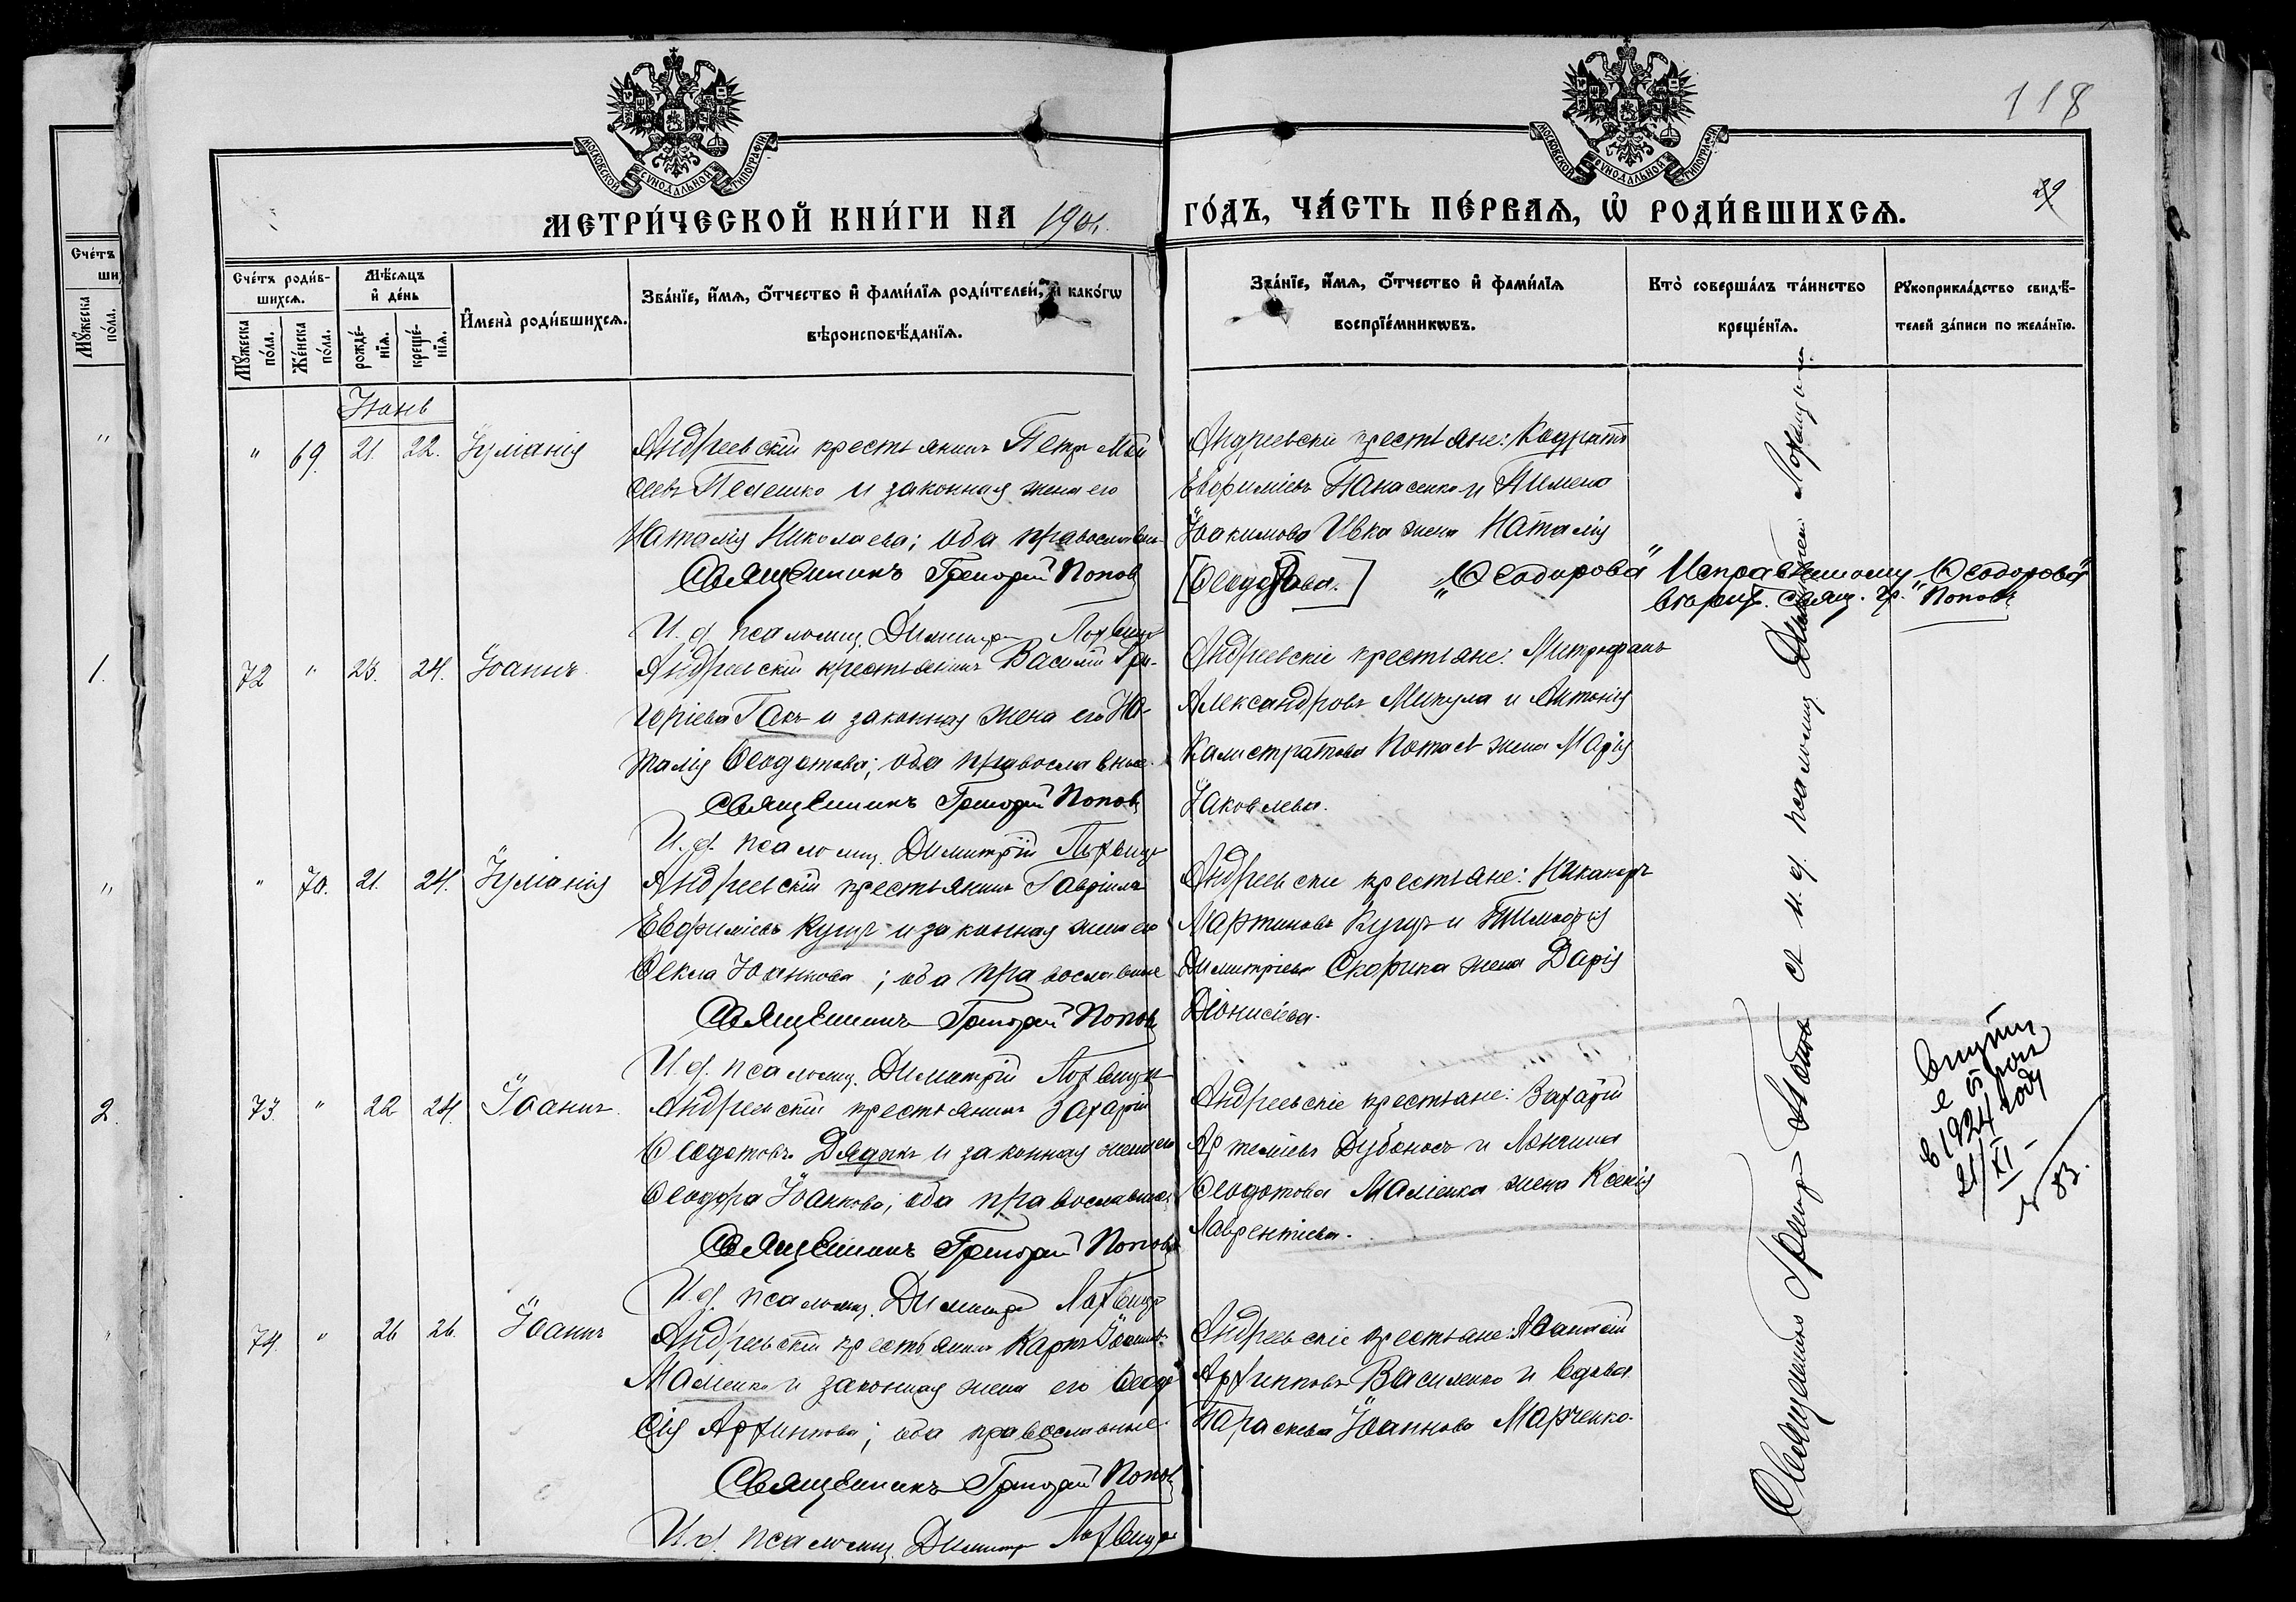 118
29
МОСКОВСКОЙ СѴНОДАЛЬНОЙ ТИПОГРАФІИ
МОСКОВСКОЙ СѴНОДАЛЬНОЙ ТИПОГРАФІИ
МЕТРИ́ЧЕСКОЙ КНИ́ГИ НА 1901.
ГО́ДЪ, ЧА́СТЬ ПЕ́РВАѦ, Ѡ҆ РОДИ́ВШИХСѦ.
Сче́тъ роди́в-
шихсѧ.
Мꙋ́жеска по́ла.
Же́нска по́ла.
Мѣ́сѧцъ
и҆ де́нь
рожде́-
нїѧ.
креще́-
нїѧ.
И҆мена̀ роди́вшихсѧ.
Зва́нїе, и҆́мѧ, ѻ҆́тчество и҆ фами́лїѧ роди́телей, и҆ како́гѡ
вѣроисповѣ́данїѧ.
Зва́нїе, и҆́мѧ, ѻ҆́тчество и҆ фами́лїѧ
воспрїе́мникѡвъ.
Кто̀ соверша́лъ та́инство
креще́нїѧ.
Рꙋкоприкла́дство свидѣ́-
телей за́писи по жела́нїю.
Іюнь
" 69. 21. 22. Іуліанія
Андреевскій крестьянинъ Петръ Мои
сеевъ Пелешко и законная жена его
Наталія Николаева; оба православные
Священникъ Григорій Поповъ
И. д. псаломщ. Димитрій
Андреевскіе крестьяне: Кодратъ
Евфиміевъ Панасенко и
Іоакимова Ивка жена Наталія
[Ѳеодотова.] „Ѳеодорова" Исправленному „Ѳеодорова"
вѣрить. Свящ. Гр. Поповъ
72 " 23. 24. Іоаннъ
Андреевскій крестьянинъ Василій Гри-
горіевъ Гакъ и законная жена его На-
талія Ѳеодотова; оба православные.
Священникъ Григорій Поповъ
И. д. псаломщ. Димитрій
Андреевскіе крестьяне: Митрофанъ
Александровъ Микула и Антонія
Калистратова жена Марія
Іаковлева.
" 70. 21. 24. Іуліанія
Андреевскій крестьянинъ Гавріилъ
Евфиміевъ Куцъ и законная жена его
Ѳекла Іоаннова; оба православные
Священникъ Григорій Поповъ
И. д. псаломщ. Димитрій
Андреевскіе крестьяне: Никаноръ
Мартиновъ Куцъ и
Димитріева Скорика жена Дарія
Діонисіева.
73. " 22 24. Іоаннъ
Андреевскій крестьянинъ Захарій
Ѳеодотовъ Дядыкъ и законная жена его
Ѳеодора Іоаннова; оба православные
Священникъ Григорій Поповъ
И. д. псаломщ. Димитрій
Андреевскіе крестьяне: Захарій
Артеміевъ Дубоносъ и Лонгина
Ѳеодотова Маліенка жена Ксенія
Лаврентіева.
в 1924 году
21/XI -
№ 83.
74. " 26 26. Іоаннъ
Андреевскій крестьянинъ Карпъ Іоаннов.
Маліенко и законная жена его Ѳеодо
сія Архиппова; оба православные
Священникъ Григорій Поповъ
И. д. псаломщ. Димитрій
Андреевскіе крестьяне: Аѳанасій
Архипповъ Василенко и вдова
Параскева Іоаннова Марченко.
Священникъ Григорій Поповъ съ и. д. псаломщ. Димитріемъ
Сче́тъ
Мꙋ́жеска по́ла.
"
1.
"
2.